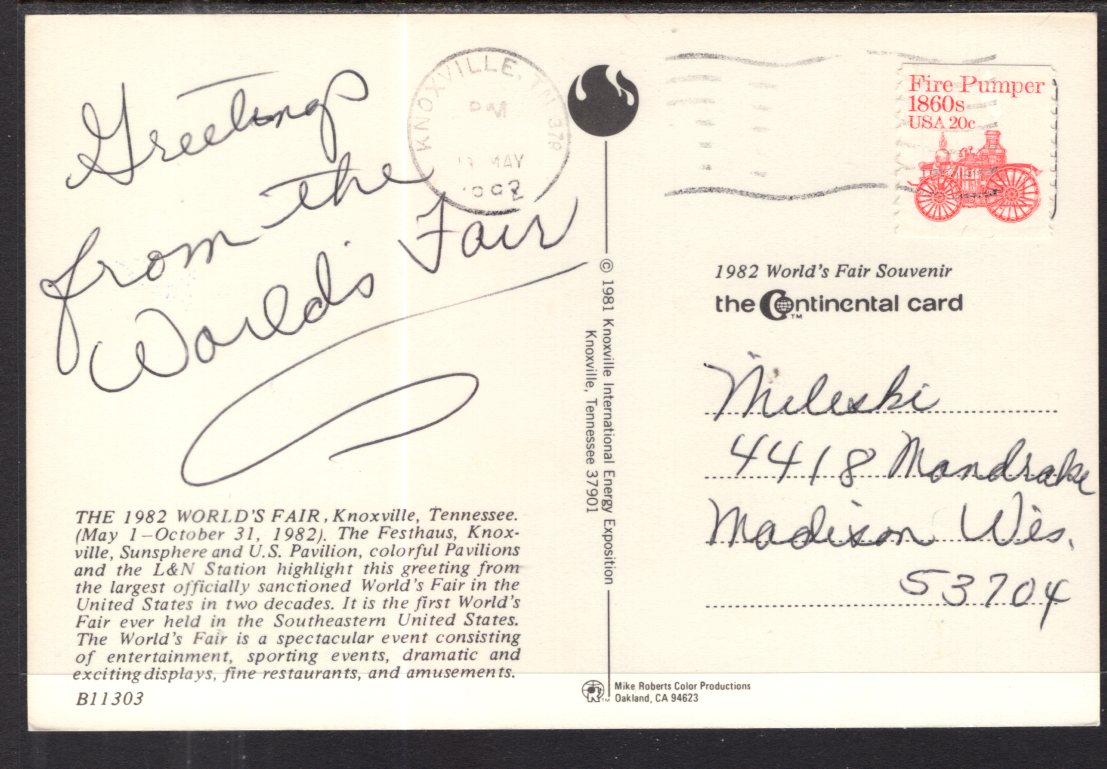 Greetings
from the
World's Fair
THE 1982 WORLD'S FAIR, Knoxville, Tennessee.
(May 1—October 31, 1982). The Festhaus, Knox-
ville, Sunsphere and U.S. Pavilion, colorful Pavilions
and the L&N Station highlight this greeting from
the largest officially sanctioned World's Fair in the
United States in two decades. It is the first World's
Fair ever held in the Southeastern United States.
The World's Fair is a spectacular event consisting
of entertainment, sporting events, dramatic and
exciting displays, fine restaurants, and amusements.
B11303
KNOXVILLE, TN 379
PM
MAY
1982
© 1981 Knoxville International Energy Exposition
Knoxville, Tennessee 37901
Mike Roberts Color Productions
Oakland, CA 94623
Fire Pumper
1860s
USA 20c
1982 World's Fair Souvenir
the Continental card
TM
Mileski
4418 Mandrake
Madison Wis.
53704